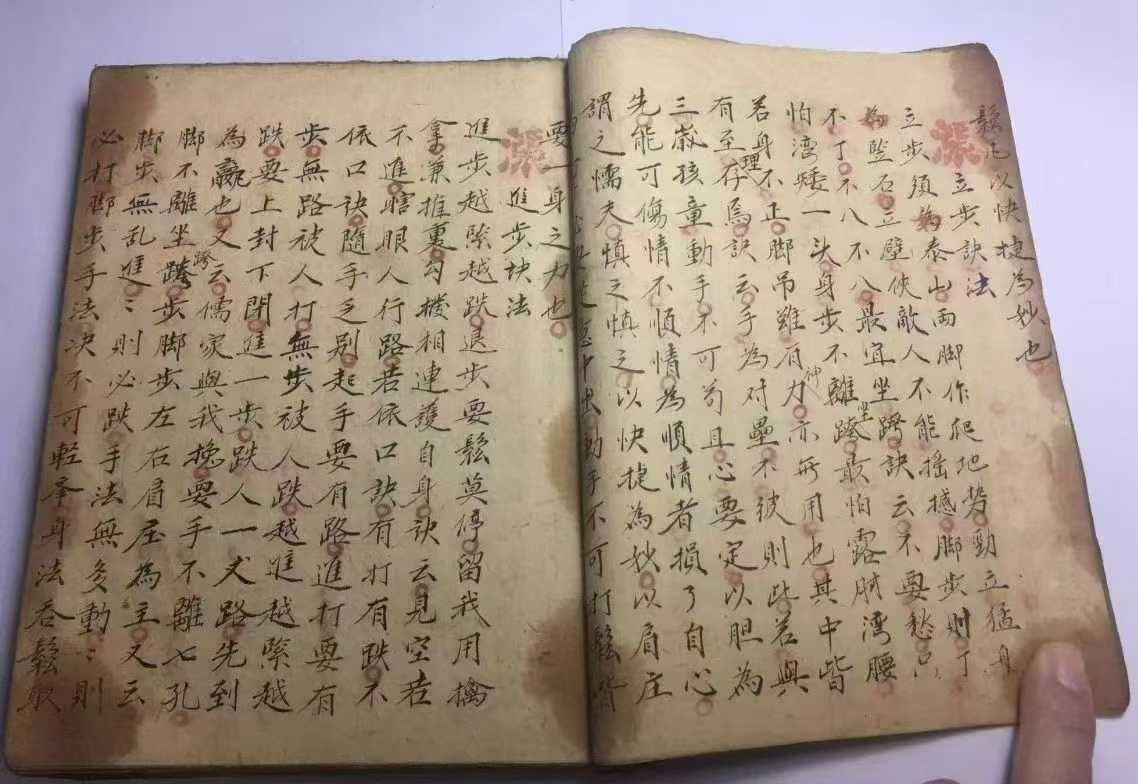 鬆凡以快捷為妙也
立步訣法
立步須為泰山兩脚作爬地势勁立猛身
為監石立壁使敵人不能摇撼脚步則丁
不丁不八不八最宜坐跨訣云不要愁只
怕湾矮一頭身步不離坐跨最怕露肘湾腰
若身理不正脚吊雖有力神亦無用也其中皆
有至存焉訣云手為对壘不彼則此若與
三歲孩童動手不可苟且心要定以胆為
先能可傷情不順情為順情者損了自心
謂之懦夫慎之慎之以快捷為妙以肩庄
中出動手不可打鬆皆
要一身之力也
進步訣法
進步越隂越跌退步要鬆莫停留我用擒
拿兼推裏勾撥相連護自身訣云見空若
不進瞎眼人行路若依口訣有打有跌不
依口訣隨手乏别起手要有路進打要有
步無路被人打無步被人跌越進越隂越
跌要上封下閉進一步跌人一丈路先到
為贏也又云儒家與我挽耍手不離七孔
脚不離坐跨跨步脚步左右眉庄為主又云
脚步無乱進:則必跌手法無多動:則
必打脚步手法决不可軽季身法吞鬆取